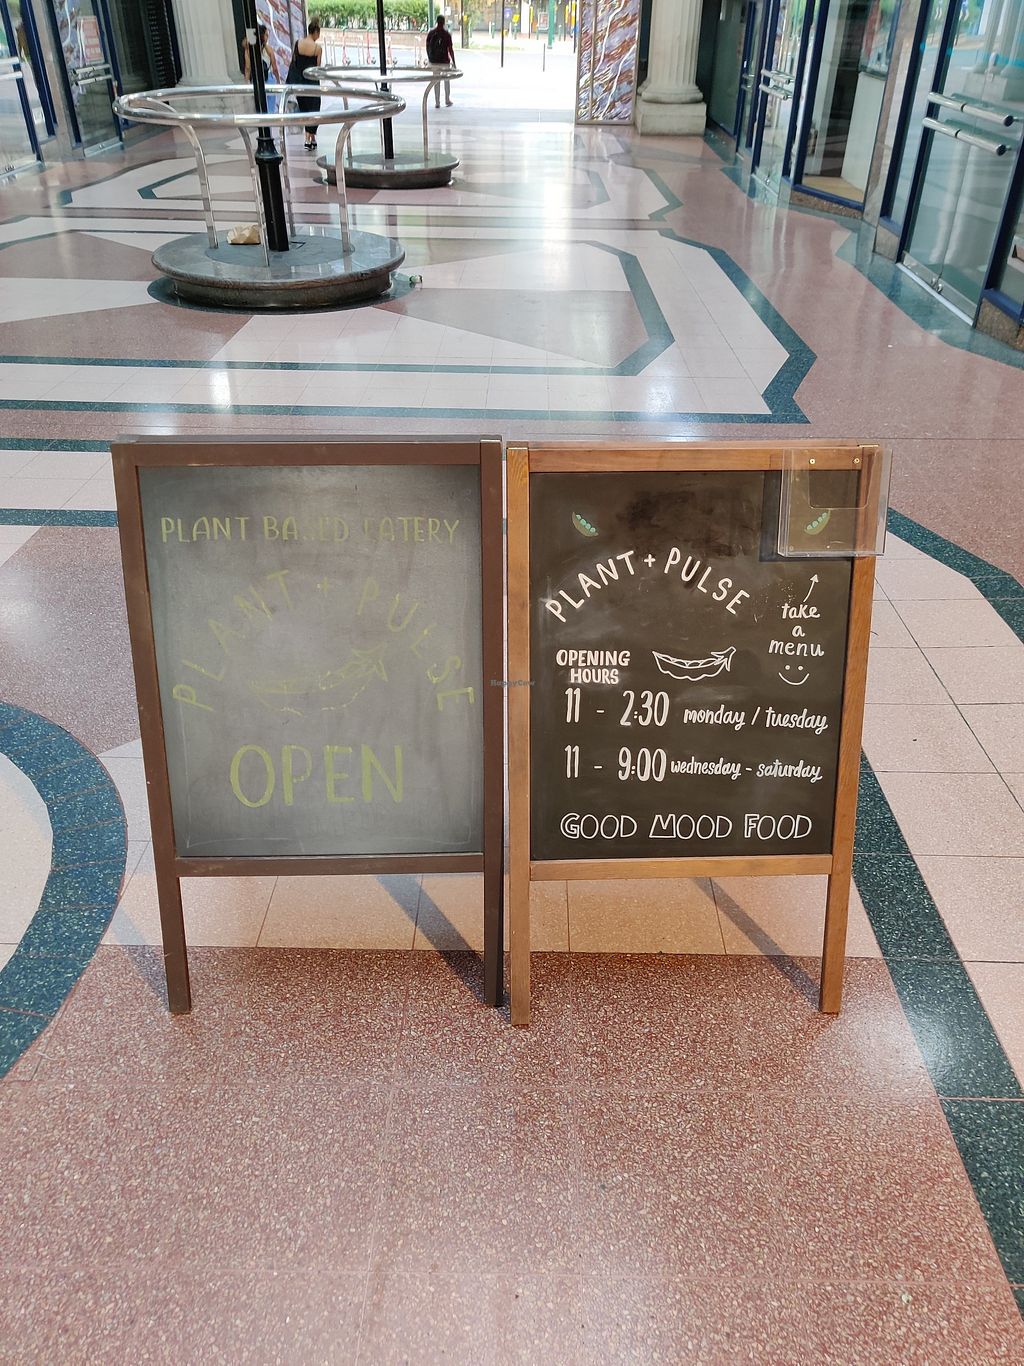 PLANT BASED EATERY
PLANT + PULSE
OPEN
PLANT + PULSE
take
a
menu
OPENING
HOURS
11 - 2:30 monday / tuesday
11 - 9:00 wednesday - saturday
GOOD MOOD FOOD
HappyCow